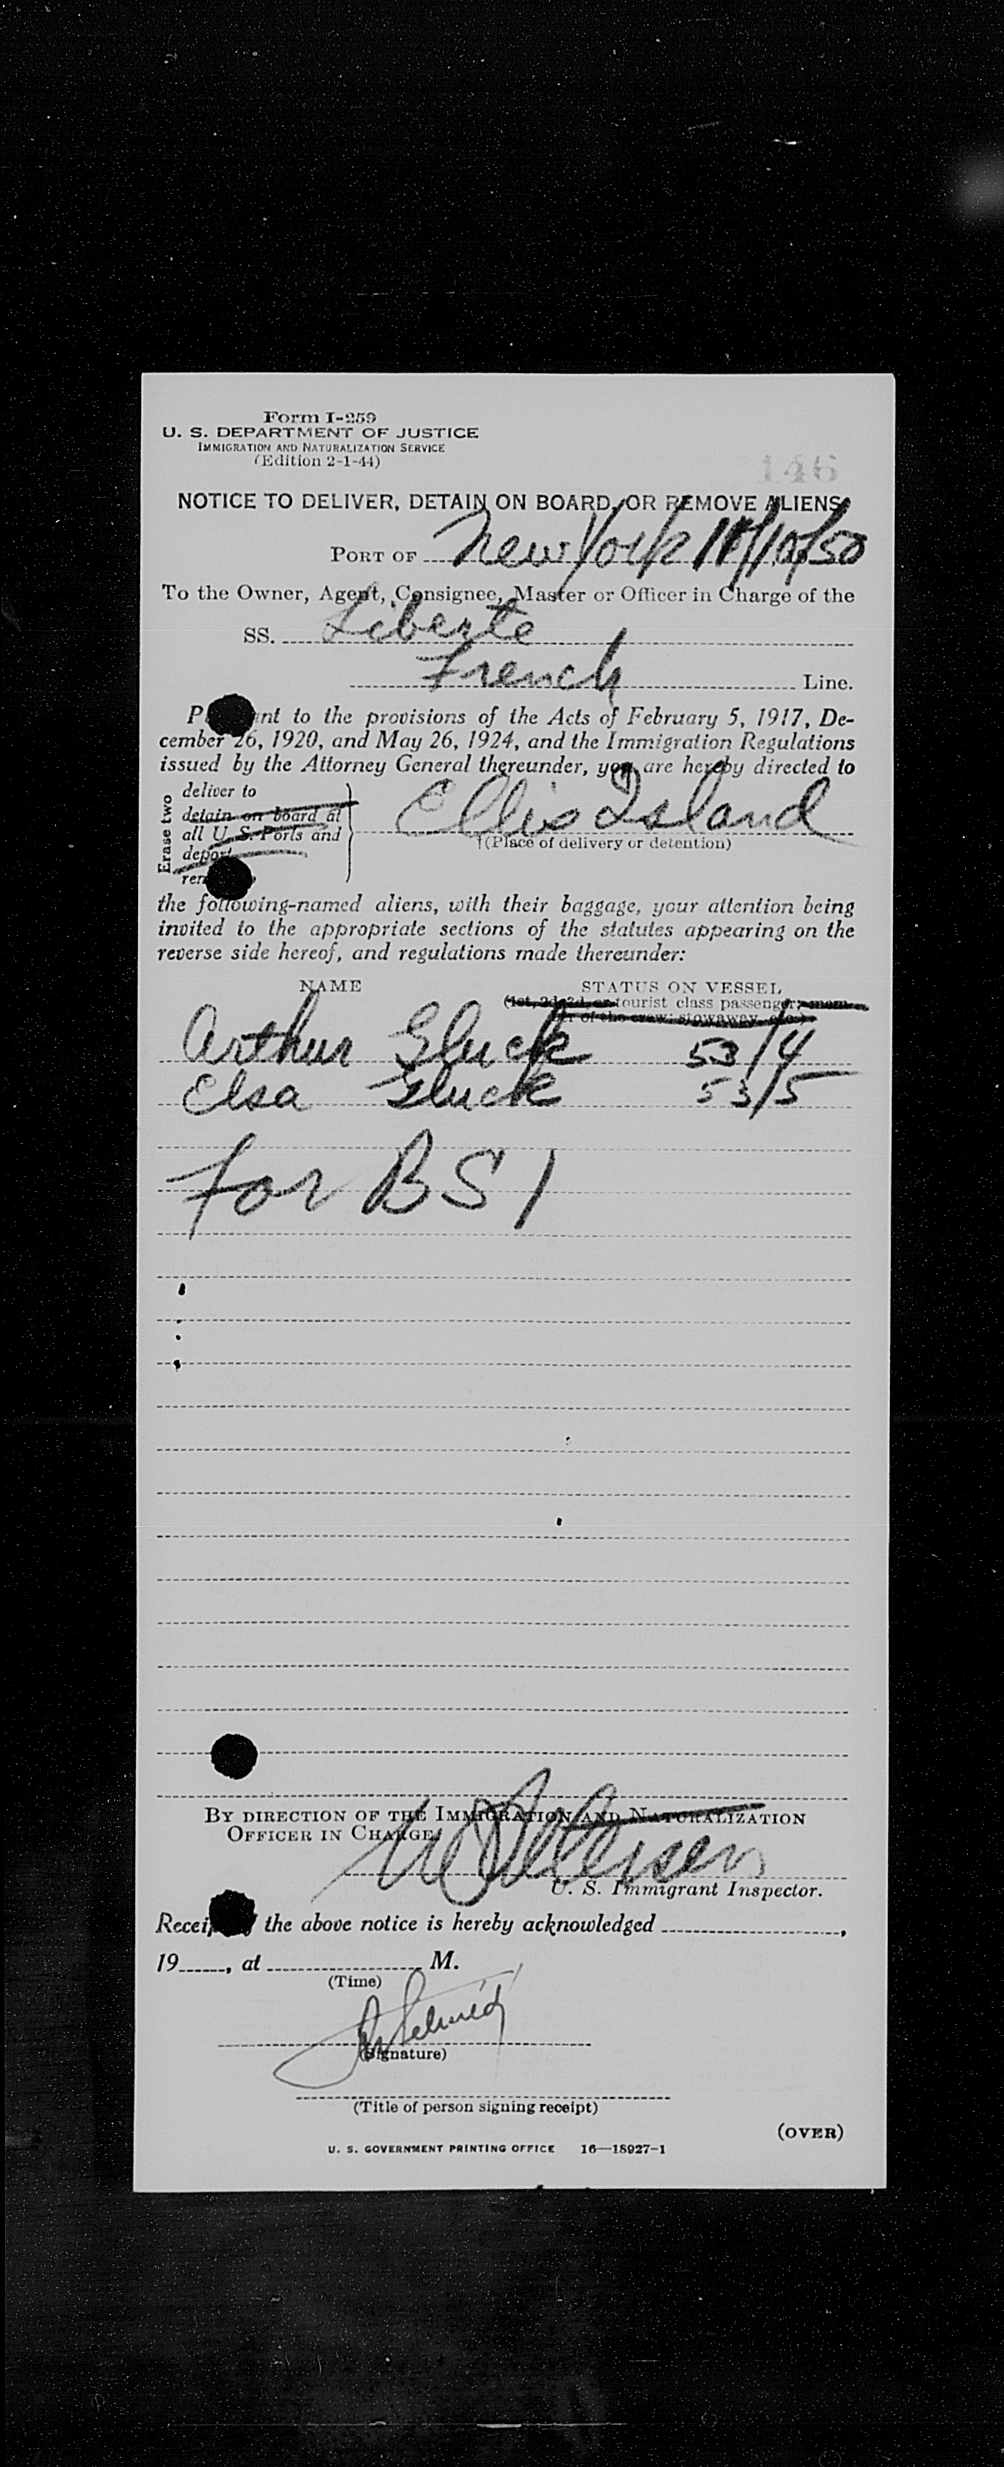 Form I-259
U. S. DEPARTMENT OF JUSTICE
IMMIGRATION AND NATURALIZATION SERVICE
(Edition 2-1-44)
146
NOTICE TO DELIVER, DETAIN ON BOARD, OR REMOVE ALIENS
PORT OF New York 10/10/50
To the Owner, Agent, Consignee, Master or Officer in Charge of the
SS. Liberte
French Line.
P nt to the provisions of the Acts of February 5, 1917, De-
cember 26, 1920, and May 26, 1924, and the Immigration Regulations
issued by the Attorney General thereunder, you are hereby directed to
Erase two
deliver to
detain on board at
all U. S. Ports and
deport
rem
Ellis Island
(Place of delivery or detention)
the following-named aliens, with their baggage, your attention being
invited to the appropriate sections of the statutes appearing on the
reverse side hereof, and regulations made thereunder:
NAME STATUS ON VESSEL
(1st, 2d, 3d, or tourist class passenger; mem-
ber of the crew; stowaway, etc.)
Arthur Gluck 53/4
Elsa Gluck 53/5
for BSI
BY DIRECTION OF THE IMMIGRATION AND NATURALIZATION
OFFICER IN CHARGE,
U. S. Immigrant Inspector.
Receipt of the above notice is hereby acknowledged ,
19 , at M.
(Time)
(Signature)
(Title of person signing receipt)
(OVER)
U. S. GOVERNMENT PRINTING OFFICE 16—18927-1